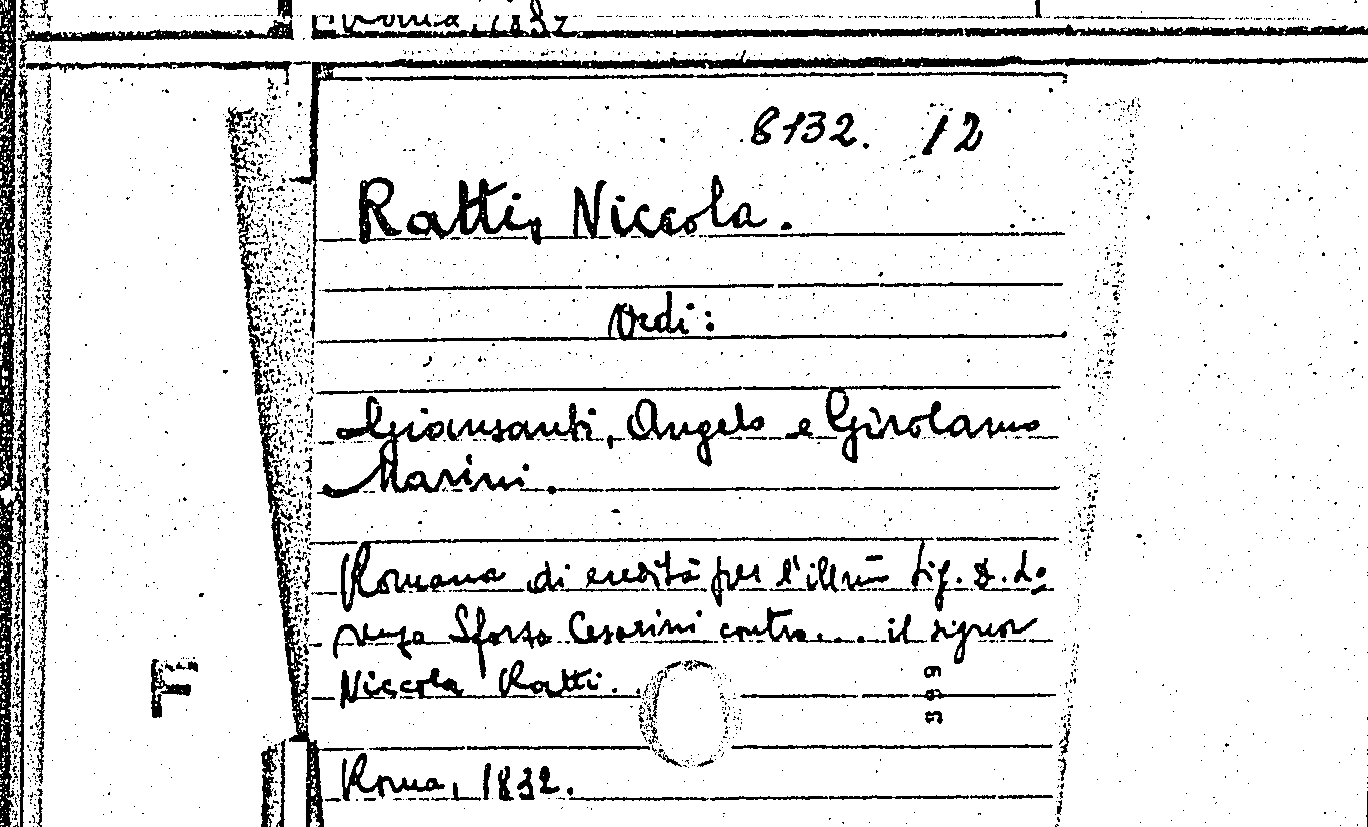 Roma, 1832
8132. 12
Ratti, Niccola.
Vedi:
Giansanti, Angelo e Girolamo
Marini.
Romana di eredità per l'illm̄o Sig. D. Lo-
renzo Sforza Cesarini contro.... il signor
Niccola Ratti.
399
F
Roma, 1832.